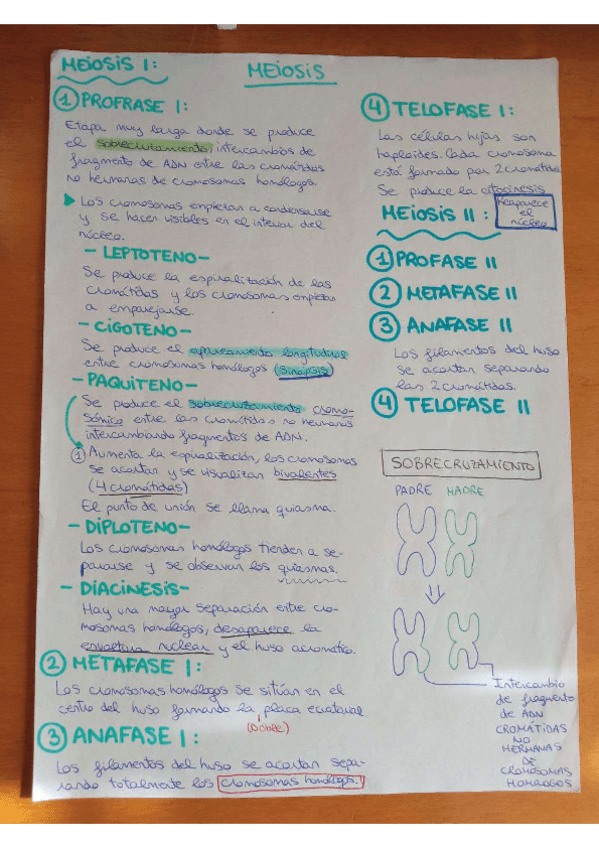 MEIOSIS
MEIOSIS I:
① PROFRASE I:
Etapa muy larga donde se produce
el sobrecruzamiento, intercambios de
fragmento de ADN entre las cromátidas
no hermanas de cromosomas homólogos.
▶ Los cromosomas empiezan a condensarse
y se hacen visibles en el interior del
núcleo.
- LEPTOTENO -
Se produce la espiralización de las
cromátidas y los cromosomas empiezan
a emparejarse.
- CIGOTENO -
Se produce el apareamiento longitudinal
entre cromosomas homólogos (Sinapsis)
- PAQUITENO -
Se produce el sobrecruzamiento cromo-
sómico entre las cromátidas no hermanas
intercambiando fragmentos de ADN.
① Aumenta la espiralización, los cromosomas
se acortan y se visualizan bivalentes
(4 cromátidas)
El punto de unión se llama quiasma.
- DIPLOTENO -
Los cromosomas homólogos tienden a se-
pararse y se observan los quiasmas.
- DIACINESIS -
Hay una mayor separación entre cro-
mosomas homólogos, desaparece la
envoltura nuclear y el huso acromático.
② METAFASE I:
Los cromosomas homólogos se sitúan en el
centro del huso formando la placa ecuatorial
(Doble)
③ ANAFASE I:
Los filamentos del huso se acortan sepa-
rando totalmente los cromosomas homólogos.
④ TELOFASE I:
Las células hijas son
haploides. Cada cromosoma
está formado por 2 cromátidas
Se produce la citocinesis
Reaparece
el
núcleo
MEIOSIS II:
① PROFASE II
② METAFASE II
③ ANAFASE II
Los filamentos del huso
se acortan separando
las 2 cromátidas.
④ TELOFASE II
SOBRECRUZAMIENTO
PADRE MADRE
Intercambio
de fragmento
de ADN
CROMÁTIDAS
NO
HERMANAS
DE
CROMOSOMAS
HOMÓLOGOS